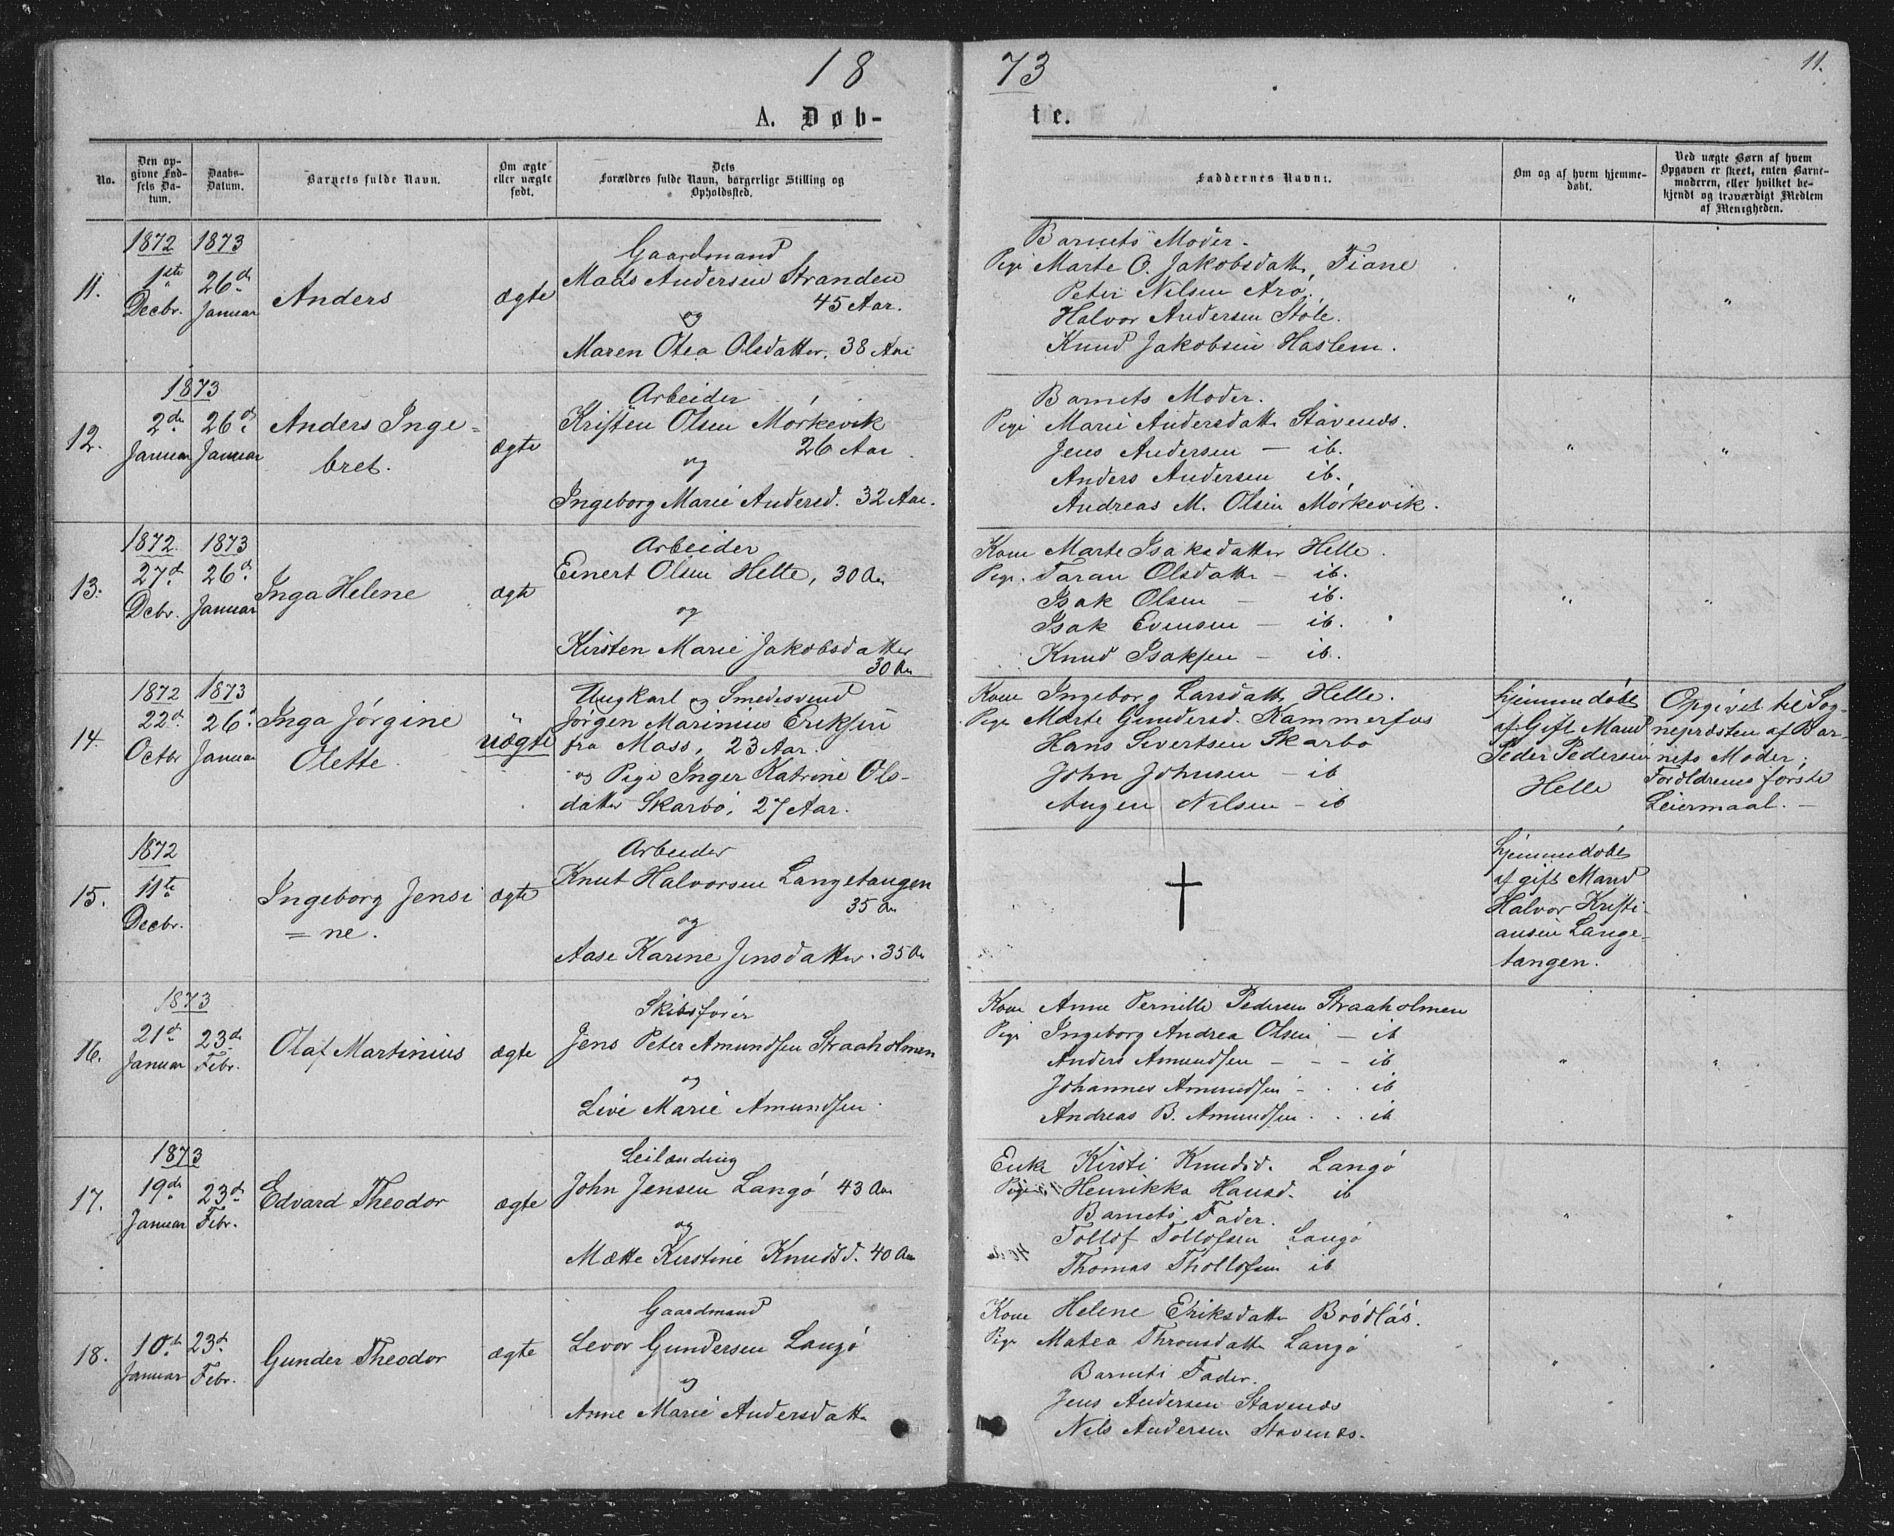 18
73
11.
A. Døb-
te.
No.
Den op-
givne Fød-
sels Da-
tum.
Daabs-
Datum.
Barnets fulde Navn.
Om ægte
eller uægte
født.
Dets
Forældres fulde Navn, borgerlige Stilling og
Opholdssted.
Faddernes Navne.
Om og af hvem hjemme-
døbt.
Ved uægte Børn af hvem
Opgaven er skeet, enten Barne-
moderen, eller hvilket be-
kjendt og troværdigt Medlem
af Menigheden.
11.
1872
1ste
Decbr.
1873
26de
Januar
Anders
ægte
Gaardmand
Mads Andersen Stranden
45 Aar.
og
Maren Otea Olsdatter. 38 Aar
Barnets Moder.
Pige Marte O. Jakobsdatt. Fiane
Peter Nilsen Arø.
Halvor Andersen Støle.
Knud Jakobsen Haslem.
"
"
12.
1873
2de
Januar
26de
Januar
Anders Inge-
bret.
ægte
Arbeider
Kristen Olsen Mørkevik
26 Aar
og
Ingeborg Marie Andersd. 32 Aar.
Barnets Moder.
Pige Marie Andersdatt. Stavenæs.
Jens Andersen — ib.
Anders Andersen ib.
Andreas M. Olsen Mørkevik.
"
"
13.
1872.
27de
Decbr.
1873
26de
Januar
Inga Helene
ægte
Arbeider
Einert Olsen Helle, 30 Aar
og
Kirsten Marie Jakobsdatter
30 Aar
Kone Marte Isaksdatter Helle.
Pige. Taran Olsdatt. — ib.
Isak Olsen — ib.
Isak Evensen — ib.
Knud Isaksen — ib.
"
"
14.
1872
22de
Octbr
1873
26de
Januar
Inga Jørgine
Olette.
uægte
Ungkarl og Smedesvend
Jørgen Marinius Eriksen
fra Moss, 23 Aar.
og Pige Inger Katrine Ols-
datter Skarbo, 27 Aar.
Kone Ingeborg Larsdatt. Helle.
Pige Marte Gundersd. Kammerfos
Hans Sivertsen Skarbo
John Johnsen — ib
Augen Nilsen — ib
Hjemmedøbt
af Gift Mand
Peder Pedersen
Helle
Opgivet til Sog-
nepræsten af Bar-
nets Moder;
Forældrenes første
Leiermaal. —
15.
1872
11te
Decbr.
Ingeborg Jensi
=ne.
ægte
Arbeider
Knut Halvorsen Langetangen
35 Aar
og
Aase Karine Jensdatter. 35 Aar
†
Hjemmedøbt
af gift Mand
Halvor Kristi-
ansen Lange-
tangen.
16.
1873
21de
Januar
23de
Febr.
Olaf Martinius
ægte
Skibsfører
Jens Peter Amundsen Straaholmen
og
Live Marie Amundsen.
Kone Anne Pernille Pedersen Straaholmen
Pige Ingeborg Andrea Olsen — ib
Anders Amundsen — — — ib
Johannes Amundsen — . . ib
Andreas B. Amundsen . . . ib
"
"
17.
1873
19de
Januar
23de
Febr.
Edvard Theodor
ægte
Leilænding
John Jensen Langø 43 Aar
og
Mætte Kirstine Knudsd. 40 Aar
Enke Kirsti Knudsd. Langø
Pige Henrikka Hansd. ib
Barnets Fader.
Tollof Tollofsen Langø
Thomas Thollofsen ib
"
"
18.
10de
Januar
23de
Febr.
Gunder Theodor
ægte
Gaardmand
Levor Gundersen Langø
og
Anne Marie Andersdatt.
Kone Helene Eriksdatt. Brødløs.
Pige Matea Thronsdatt. Langø
Barnets Fader.
Jens Andersen Stavenæs
Nils Andersen Stavenæs.
"
"